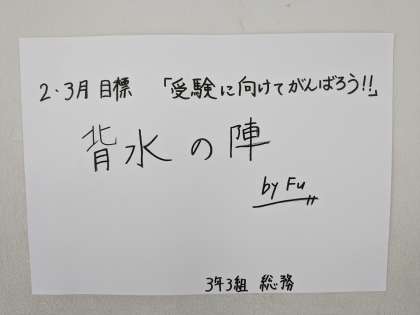 2・3月 目標 「受験に向けてがんばろう!!」
背水の陣
by Fu
3年3組 総務